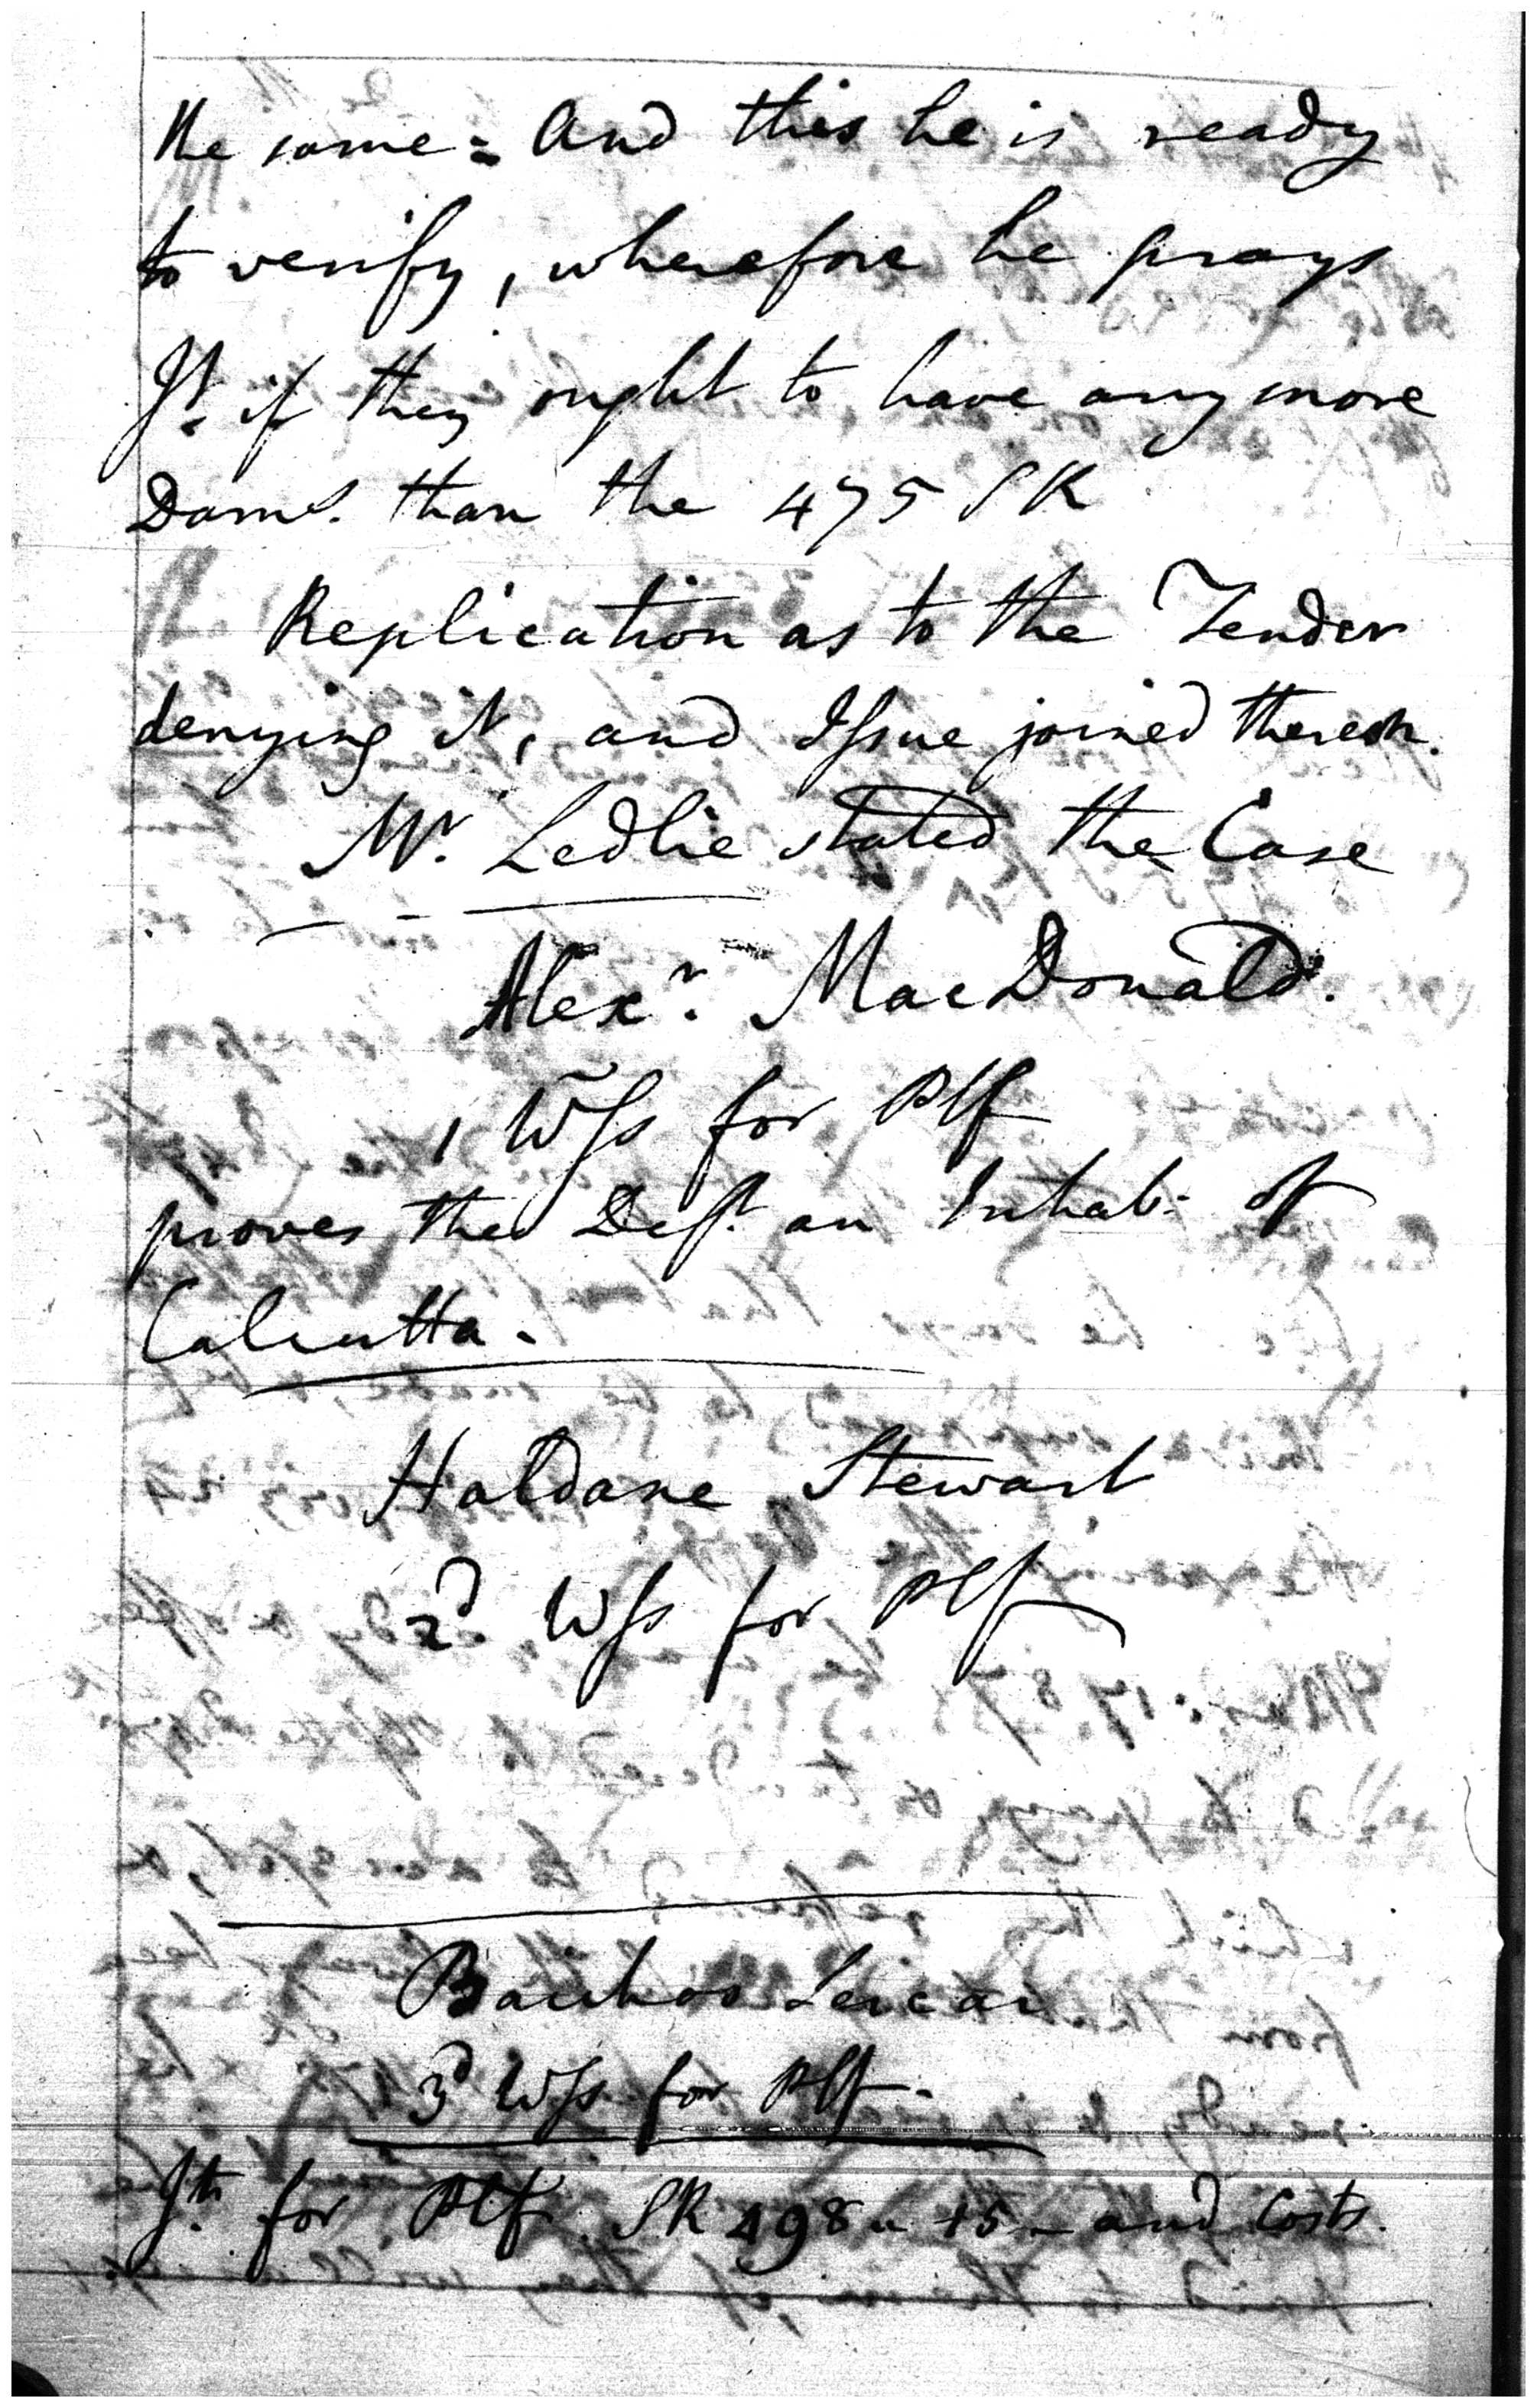 the same = And this he is ready
to verify, wherefore he prays
Jt. if they ought to have any more
Dams. than the 475 SR
Replication as to the Tender
denying it, and Issue joined thereon.
Mr. Ledlie stated the Case
Alexr. MacDonald.
1 Wss for Plf
proves the Deft. an Inhab: of
Calcutta.
Haldane Stewart
2d Wss for Plf
3d Wss for Plf.
Jt. for Plf. SR 498 " 15 - and Costs.